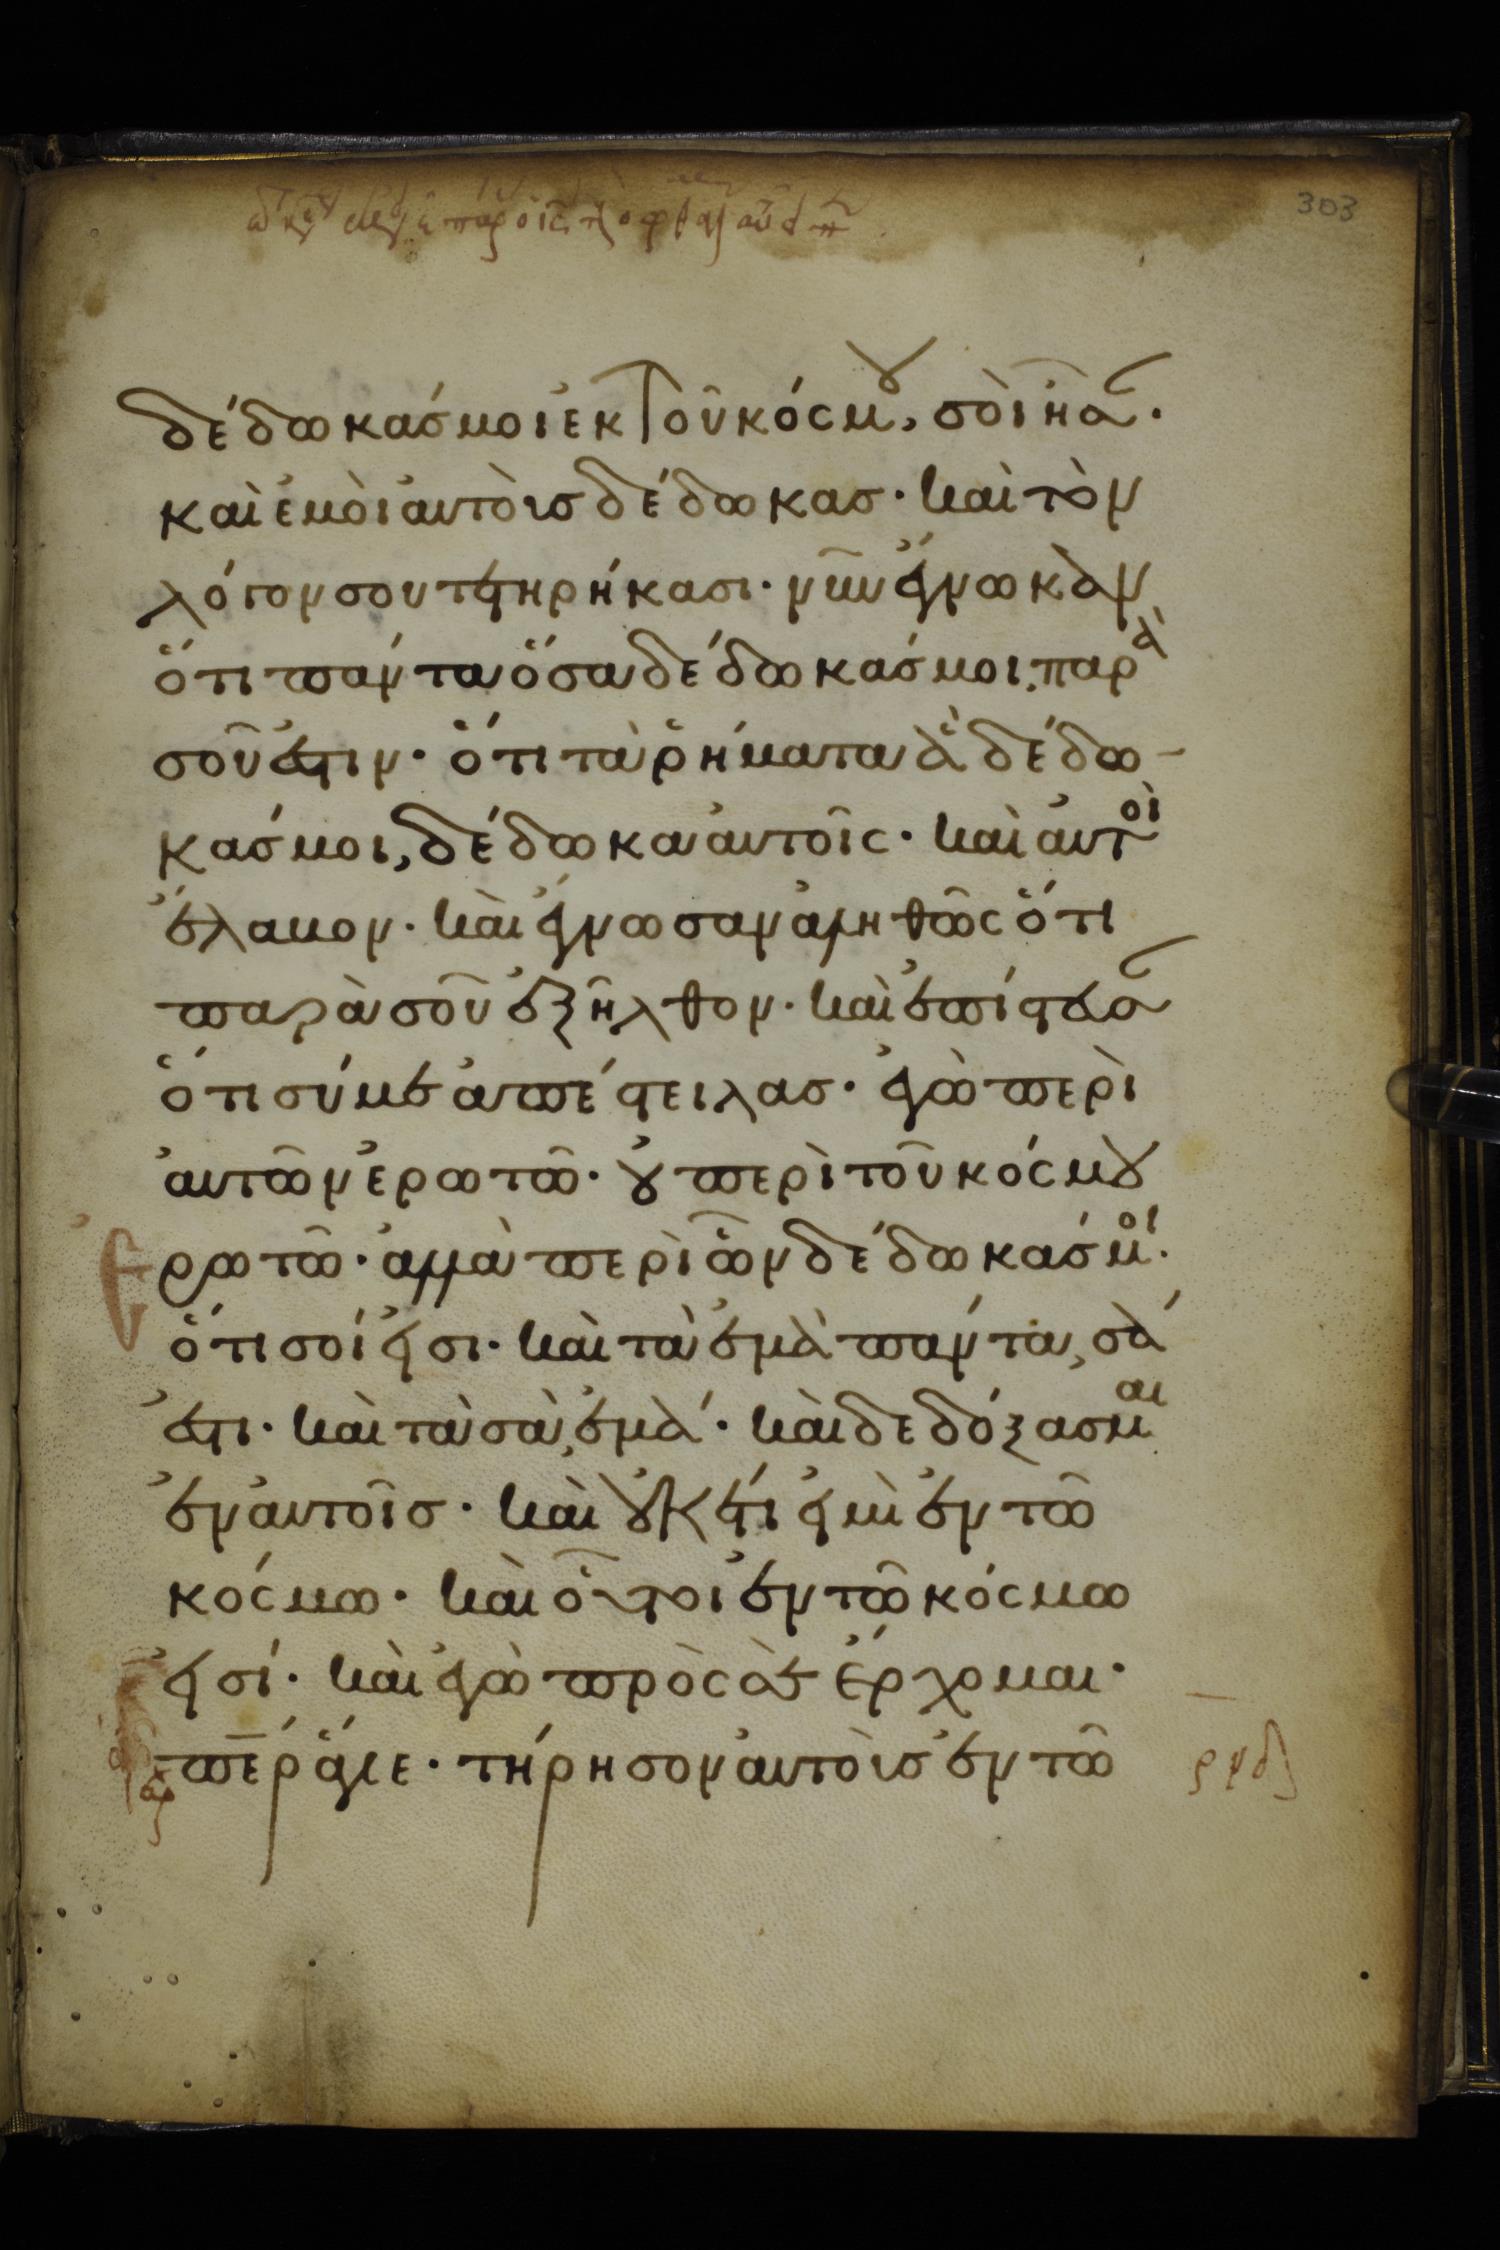 303
δέδωκάσ μοι ἐκ τοῦ κόσμου, σοὶ ἦσαν·
καὶ ἐμοὶ αὐτοὺσ δέδωκασ· καὶ τὸν
λόγον σου τετηρήκασι· νῦν ἔγνωκαν
ὅτι πάντα ὅσα δέδωκάσ μοι, παρὰ
σοῦ ἐστιν· ὅτι τὰ ῥήματα ἃ δέδω-
κάσ μοι, δέδωκα αὐτοῖς· καὶ αὐτοὶ
ἔλαβον· καὶ ἔγνωσαν ἀληθῶς ὅτι
παρὰ σοῦ ἐξῆλθον· καὶ ἐπίστευσαν
ὅτι σύ με ἀπέστειλασ· ἐγὼ περὶ
αὐτῶν ἐρωτῶ· οὐ περὶ τοῦ κόσμου
ἐρωτῶ· ἀλλὰ περὶ ὧν δέδωκάσ μοι·
ὅτι σοί εἰσι· καὶ τὰ ἐμὰ πάντα, σά
ἐστι· καὶ τὰ σὰ, ἐμά· καὶ δεδόξασμαι
ἐν αὐτοῖσ· καὶ οὐκ ἔτι εἰμὶ ἐν τῶ
κόσμω· καὶ οὗτοι ἐν τῶ κόσμω
εἰσί· καὶ ἐγὼ πρὸς σὲ ἔρχομαι·
περ ἅγιε· τήρησον αὐτοὺσ ἐν τῶ
ρνδ